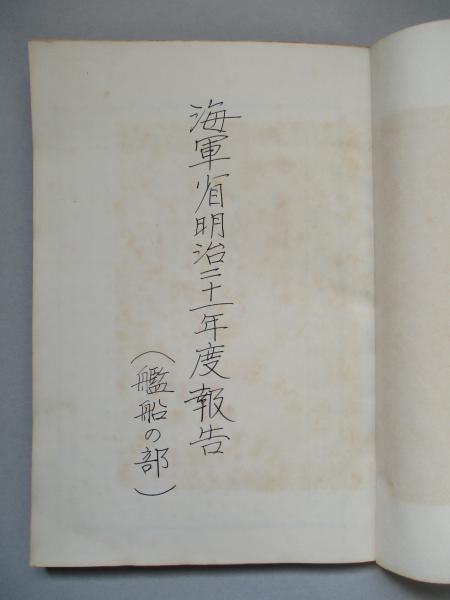 海軍省明治二十一年度報告
（艦船の部）